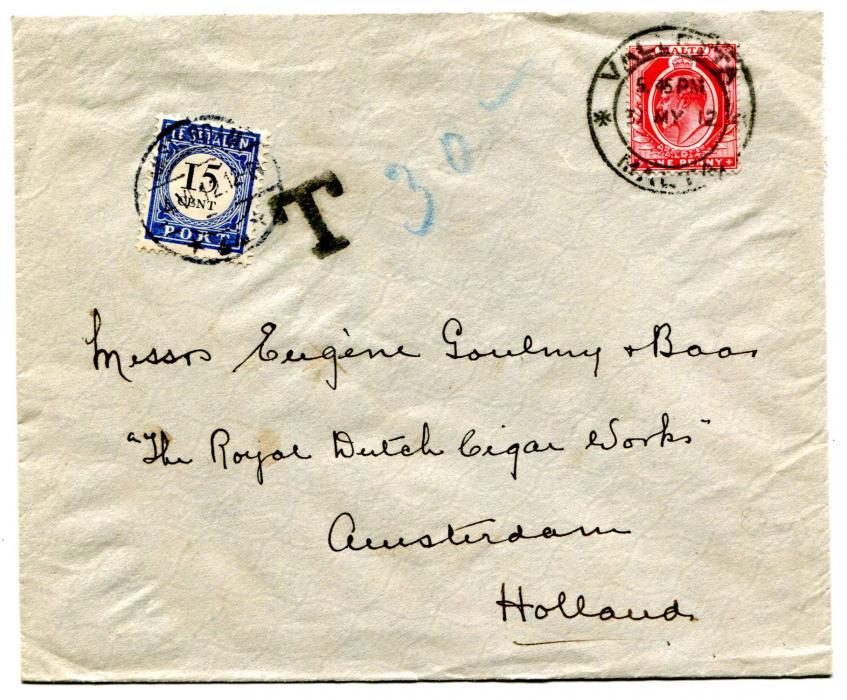 VALLETTA
MALTA
5.45 PM
MY 12
MALTA
ONE PENNY
TE BETALEN
15
CENT
PORT
T
30
Messrs Eugène Goulmy & Baar
"The Royal Dutch Cigar Works"
Amsterdam
Holland